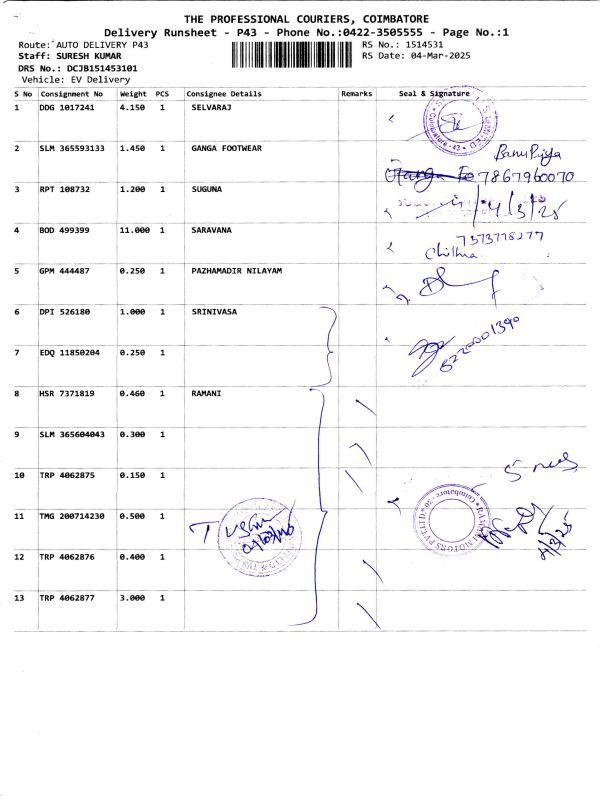 THE PROFESSIONAL COURIERS, COIMBATORE
Delivery Runsheet - P43 - Phone No.:0422-3505555 - Page No.:1
Route: AUTO DELIVERY P43
RS No.: 1514531
Staff: SURESH KUMAR
RS Date: 04-Mar-2025
DRS No.: DCJB151453101
Vehicle: EV Delivery
S No Consignment No Weight PCS Consignee Details Remarks Seal & Signature
1 DDG 1017241 4.150 1 SELVARAJ
2 SLM 365593133 1.450 1 GANGA FOOTWEAR
7867960070
3 RPT 108732 1.200 1 SUGUNA
4/3/25
4 BOD 499399 11.000 1 SARAVANA
7373778277
Chithra
5 GPM 444487 0.250 1 PAZHAMADIR NILAYAM
6 DPI 526180 1.000 1 SRINIVASA
8220001390
7 EDQ 11850204 0.250 1
8 HSR 7371819 0.460 1 RAMANI
9 SLM 365604043 0.300 1
10 TRP 4062875 0.150 1
11 TMG 200714230 0.500 1
12 TRP 4062876 0.400 1
13 TRP 4062877 3.000 1